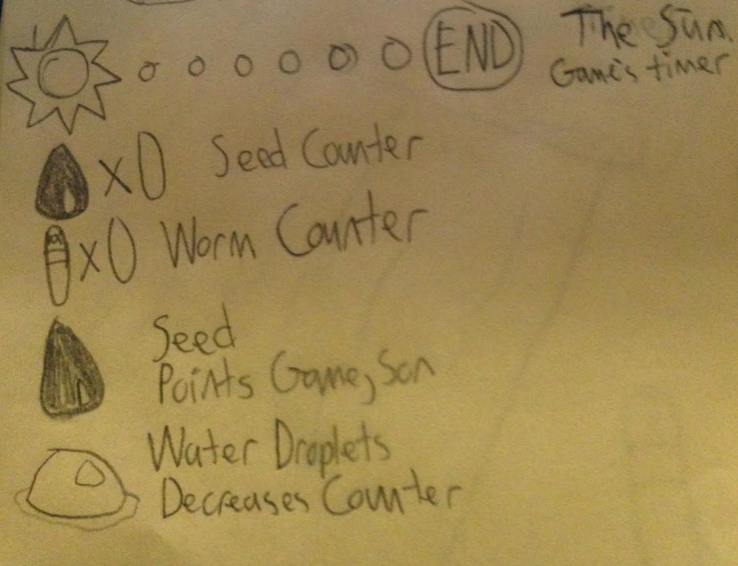 END
The Sun.
Game's timer
x0 Seed Counter
x0 Worm Counter
Seed
Points Game, Son
Water Droplets
Decreases Counter